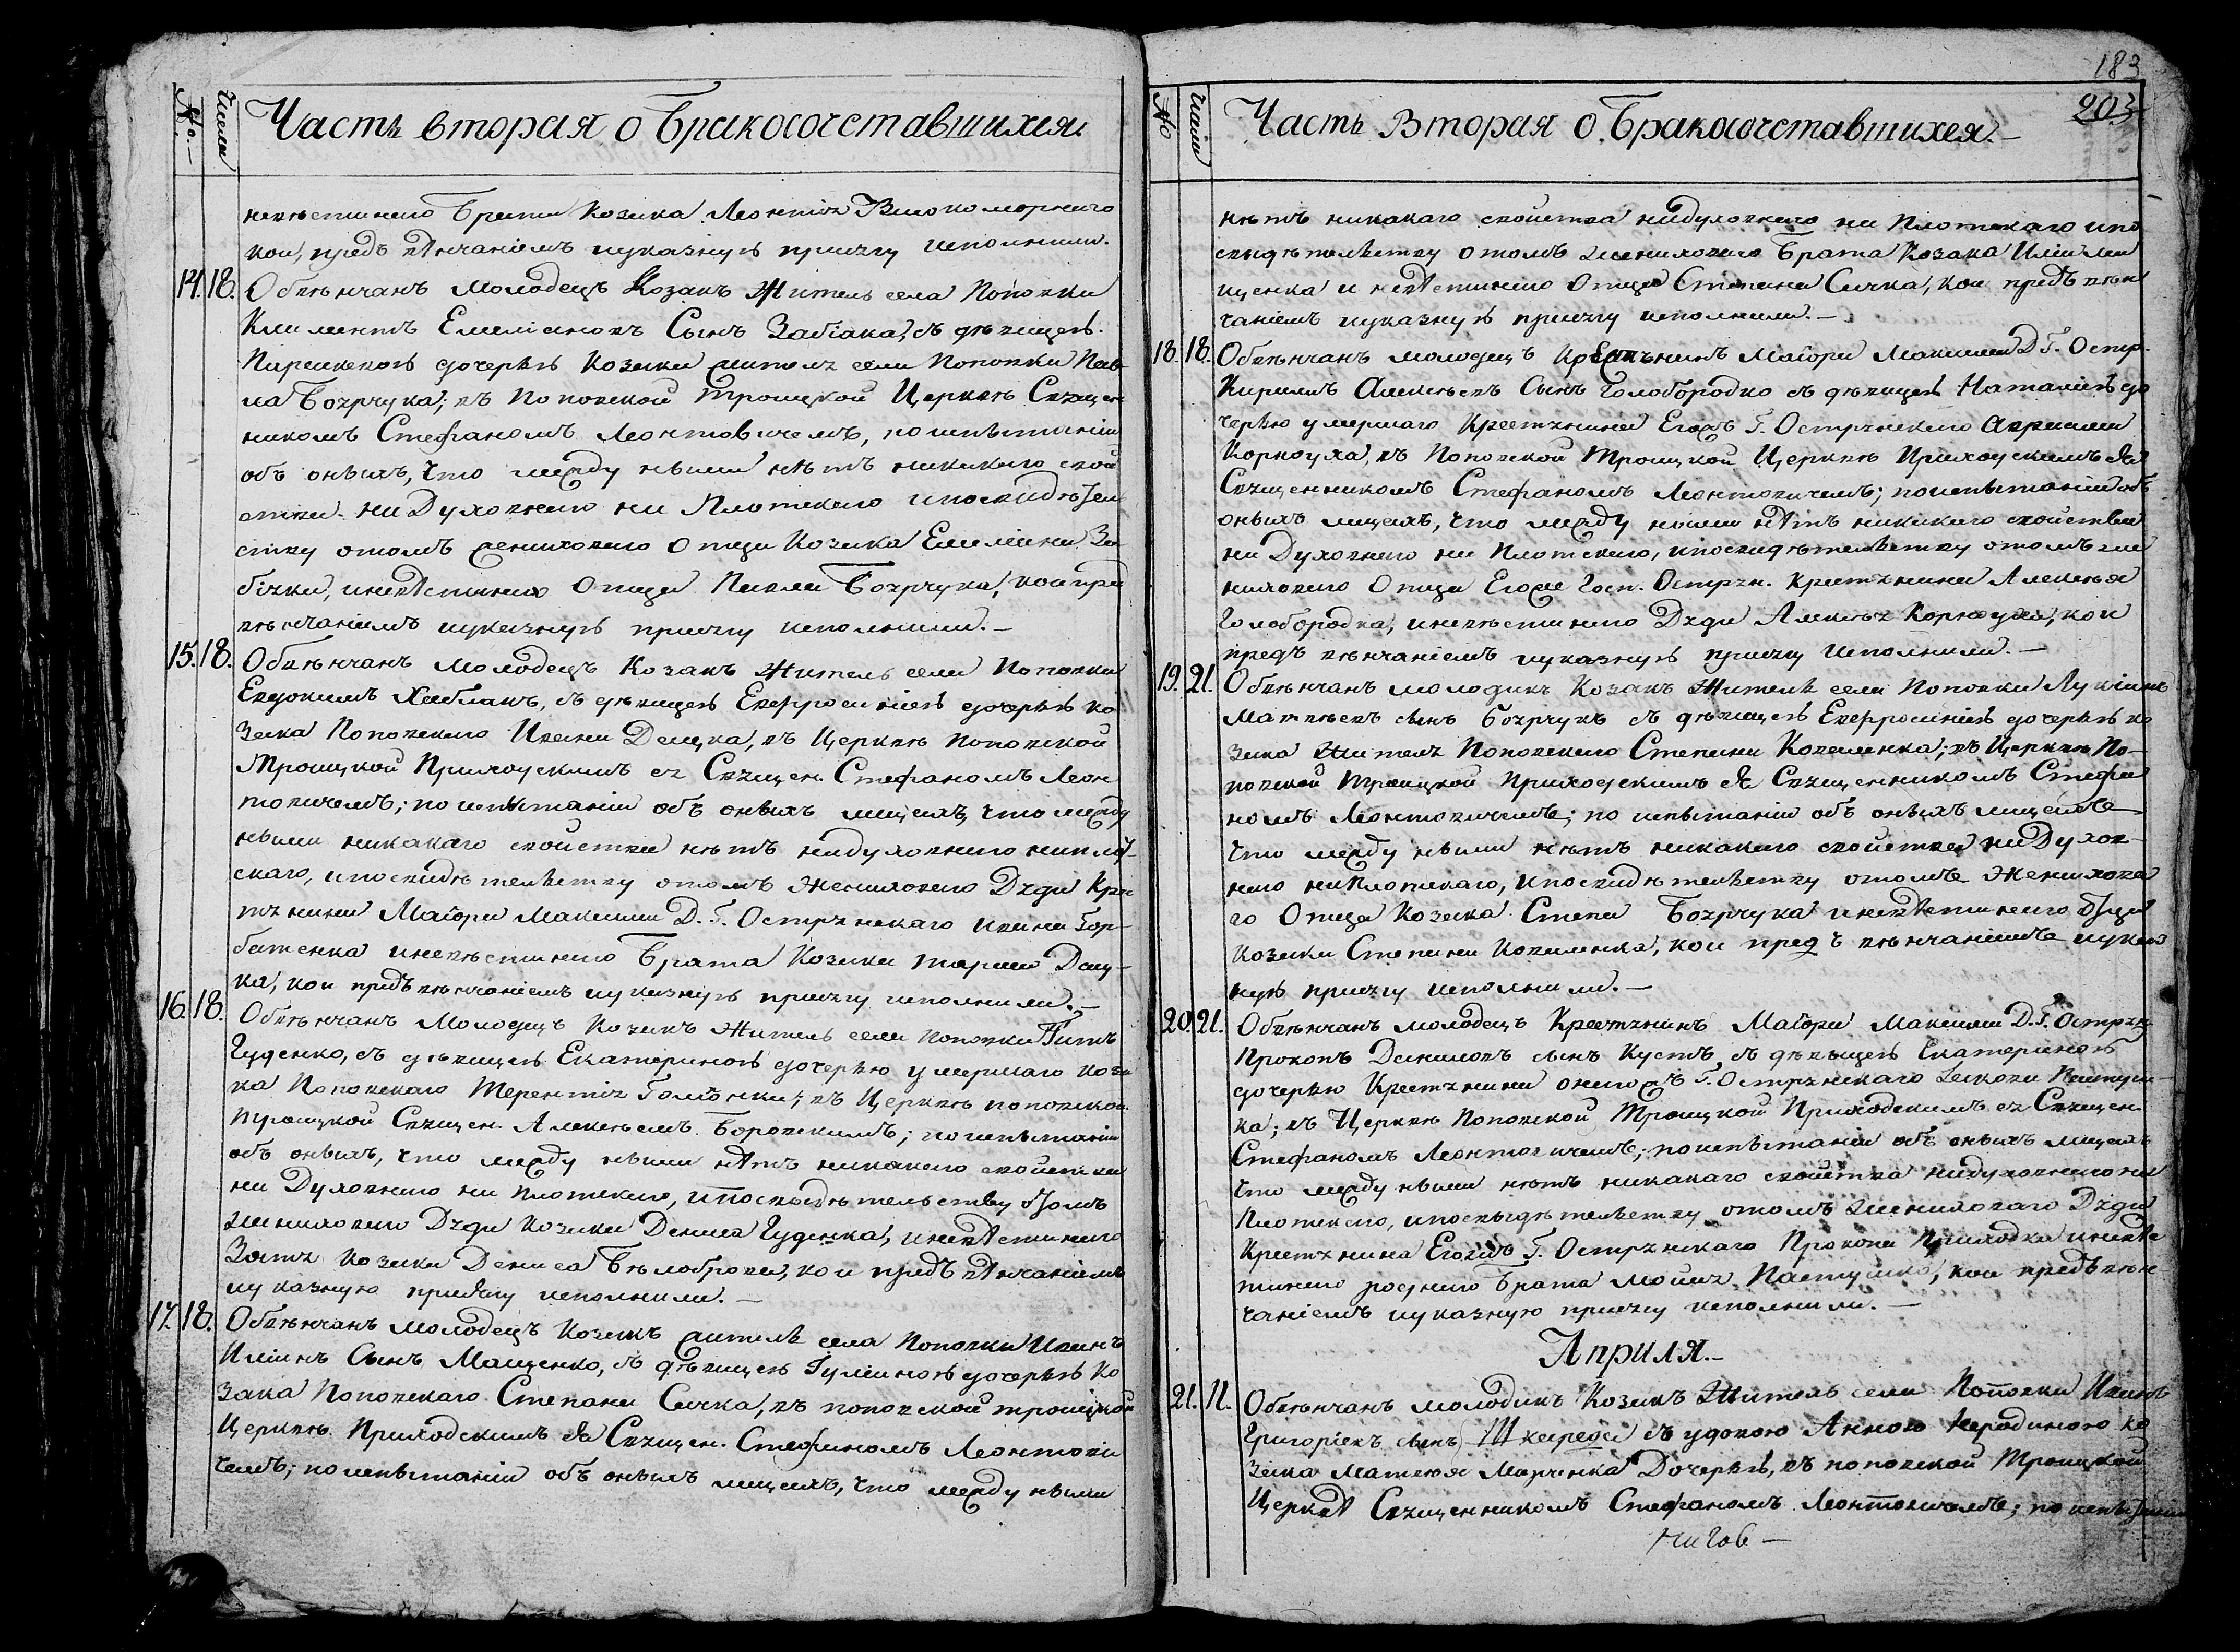 No.
Числа
Часть вторая о Бракосочетавшихся.
невѣстинаго Брата Козака Леонтія
кои, предъ вѣнчаніемъ и указную присягу исполнили.
14. 18. Обвѣнчанъ Молодецъ Козакъ Житель села Поповки
Климентъ Емеліановъ Сынъ Забіака, съ дѣвицею
Параскевою дочерью Козака жителя села Поповки Пав-
ла Бохрчука; въ Поповской Троицкой Церквѣ Священ
никомъ Стефаномъ Леонтовичемъ, по испытаніи
объ оныхъ, что между ными нѣтъ никакаго свой
ства ни Духовнаго ни Плотскаго и посвидѣтел
ству отомъ жениховаго Отца Козака Емеліана За
біяки, и невѣстиного Отца Павла Бохрчука, кои пред
вѣнчаніемъ и указную присягу исполнили.
15. 18. Обвѣнчанъ Молодецъ Козакъ Житель села Поповки
Евдокимъ съ дѣвицею Евфросиніею дочерью ко
зака Поповскаго Ивана Дацка, въ Церквѣ Поповской
Троицкой Приходскимъ ея Священ. Стефаномъ Леон
товичемъ; по испытаніи объ оныхъ лицахъ, что между
ными никакаго свойства нѣтъ нидуховнаго ниплот-
скаго, и посвидѣтелвству отомъ Жениховаго Дяди Крес
тянина Маіора Максима Д. Г. Острянскаго Ивана Гор-
батенка и невѣстинаго Брата Козака Тараса Дацу-
ка, кои предъ вѣнчаніемъ и указную присягу исполнили.
16. 18. Обвѣнчанъ Молодецъ Козакъ Житель села Поповки Титъ
Гуденко, съ дѣвицею Екатериною дочерью умершаго коза
ка Поповскаго Терентія въ Церквѣ поповской
Троицкой Священ. Алексѣемъ Боровскимъ; по испытаніи
объ оныхъ, что между ными нѣтъ никакаго свойства
ни Духовнаго ни плотскаго, и посвыдѣтельству отомъ
жениховаго Дяди Козака Дениса Гуденка, и невѣстинаго
Зятя Козака Дениса Бѣлоброва, кои предъ вѣнчаніемъ
и указную присягу исполнили.
17. 18. Обвѣнчанъ Молодецъ Козакъ житель села Поповки Иванъ
Иліинъ Сынъ Мащенко, съ дѣвицею Гуліаною дочерью Ко
зака Поповскаго Степана Сачка, въ поповской троицкой
Церквѣ Приходскимъ ея Священ. Стефаномъ Леонтови
чемъ; по испытаніи объ оныхъ лицахъ, что между ными
183
203
No
Числа
Часть Вторая о Бракосочетавшихся.
нѣтъ никакаго свойства нидуховнаго ни Плотскаго и по
свидѣтелвству отомъ жениховаго Брата Козака
щенка и невѣстинаго Отца Степана Сачка, кои предъ вѣн
чаніемъ и указную присягу исполнили.
18. 18. Обвѣнчанъ молодецъ Крестянинъ Маіора Максима Д. Г. Остр.
Кирилъ Алексѣевъ Сынъ Голобородко съ дѣвицею Наталіею до
черью умершаго Крестянина Егожъ Г. Острянскаго Авраама
Корноуха, въ Поповской Троицкой Церквѣ Приходскимъ ея
Священникомъ Стефаномъ Леонтовичемъ; поиспытаніи объ
оныхъ лицахъ, что между ными нѣтъ никакаго свойства
ни Духовнаго ни Плотскаго, и посвидѣтелвству отомъ же
ниховаго Отца Егоже Госп. Острян. крестянина Алексѣя
Голобородка, и невѣстинаго Дяди Алексѣя Корноуха, кои
предъ вѣнчаніемъ и указную присягу исполнили.
19. 21. Обвѣнчанъ молодикъ Козакъ Житель села Поповки Лукіанъ
Матвѣевъ сынъ Бохрчукъ съ дѣвицею Евфросиніею дочерью ко
зака Жителя Поповскаго Степана въ Церквѣ По-
повской Троицкой Приходскимъ ея Священникомъ Стефа
номъ Леонтовичемъ; по испытаніи объ оныхъ лицахъ
что между ными нѣтъ никакаго свойства ни Духов-
наго ниплотскаго, и посвидѣтелвству отомъ Женихова
го Отца Козака Степа Бохрчука и невѣстинаго отца
Козака Степана кои предъ вѣнчаніемъ и указ
ную присягу исполнили.
20. 21. Обвѣнчанъ молодецъ Крестянинъ Маіора Максима Д. Г. Острян
Прокопъ Даниловъ сынъ Кустъ, съ дѣвицею Екатериною
дочерью Крестянина онагожъ Г. Острянскаго Пасту-
ка; въ Церквѣ Поповской Троицкой Приходскимъ ея Священ.
Стефаномъ Леонтовичемъ; поиспытаніи объ оныхъ лицахъ
что между ными нѣтъ никакаго свойства нидуховнаго ни
Плотскаго, и посвыдѣтелвству отомъ жениховаго Дяди
Крестянина Егожъ Г. Острянскаго Прокопа Приходка и невѣс
тинаго роднаго Брата Пастушка, кои предъ вѣн
чаніемъ и указную присягу исполнили.
Априля.
21. 11. Обвѣнчанъ молодикъ Козакъ Житель села Поповки Иванъ
Григоріевъ сынъ съ удовою Анною Кародиною ко
зака Матвѣя Марченка Дочерью, въ поповской Троицкой
Церквѣ Священникомъ Стефаномъ Леонтовичемъ; по испытаніи